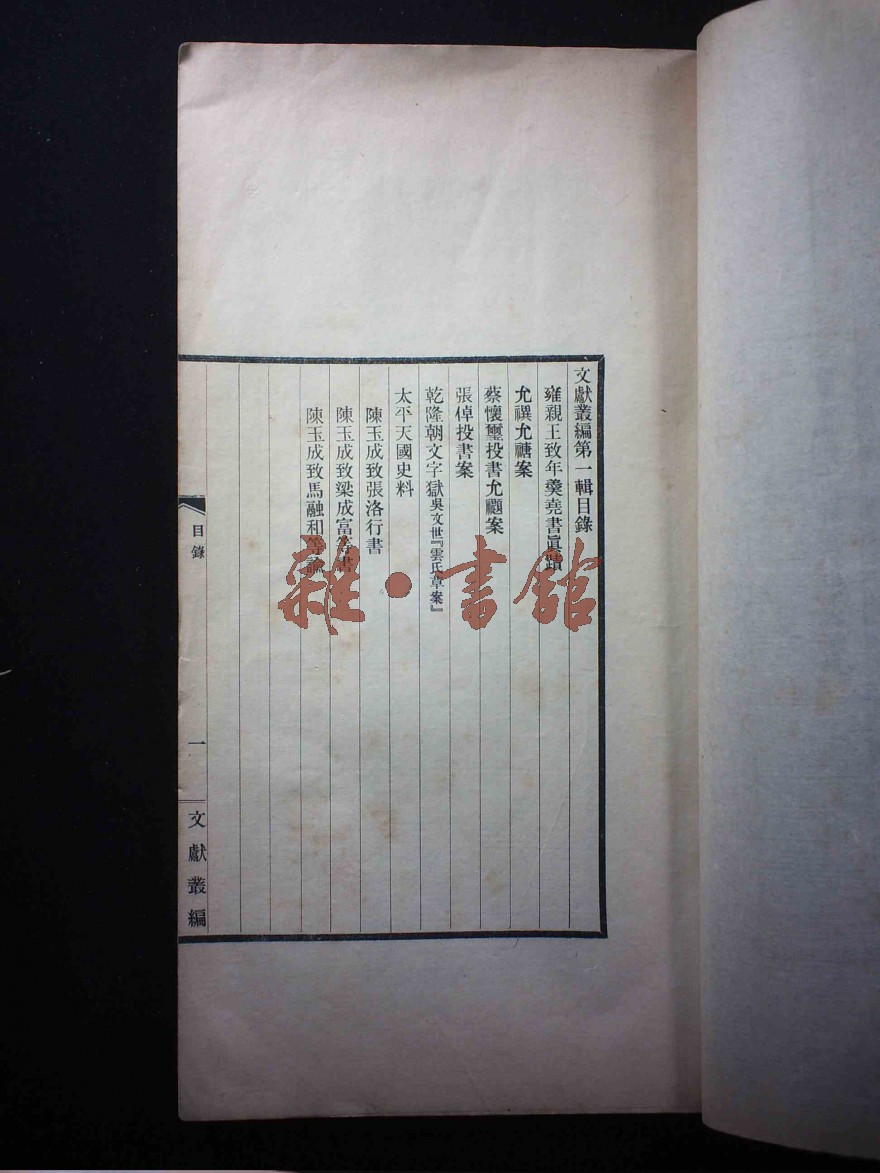 文獻叢編第一輯目錄
雍親王致年羹堯書眞蹟
允禩允禟案
蔡懷璽投書允禵案
張倬投書案
乾隆朝文字獄吳文世『雲氏草案』
太平天國史料
陳玉成致張洛行書
陳玉成致梁成富等書
陳玉成致馬融和等諭
目錄
一
文獻叢編
雜·書館